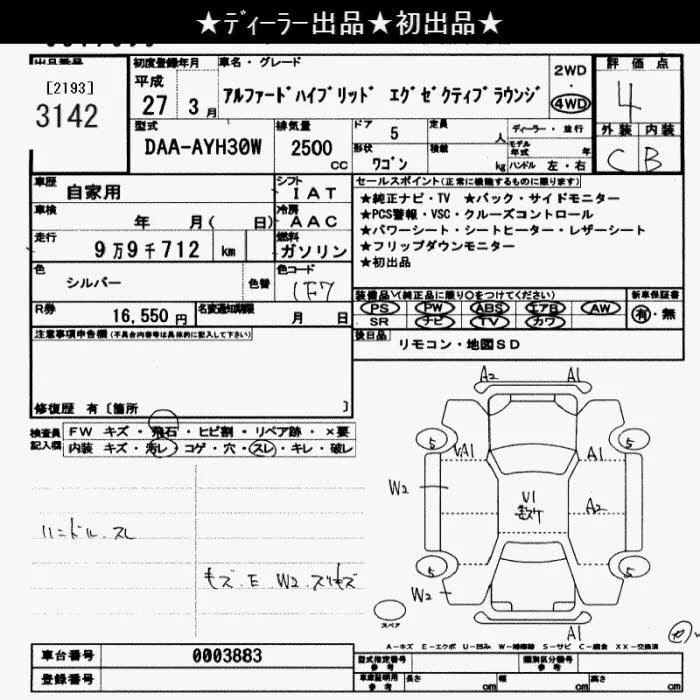 ★ディーラー出品★初出品★
出品番号
[2193]
3142
初度登録年月
平成
27 3月
車名・グレード
アルファードハイブリッド エグゼクティブラウンジ
2WD
・
4WD
評価点
4
外装 内装
C B
型式
DAA-AYH30W
排気量
2500
cc
ドア
5
定員
人
ディーラー・並行
モデル年式 年
形状
ワゴン
積載
kg
ハンドル 左・右
車歴
自家用
シフト
IAT
車検
年 月( 日)
冷房
AAC
走行
9万9千712 km
燃料
ガソリン
色
シルバー
色替
色コード
1F7
R券
16,550円
名変通知期限
月 日
セールスポイント(正常に機能するものに限ります)
★純正ナビ・TV ★バック・サイドモニター
★PCS警報・VSC・クルーズコントロール
★パワーシート・シートヒーター・レザーシート
★フリップダウンモニター
★初出品
装備品(純正品に限り○をつけてください)
PS PW ABS エアB AW
SR ナビ TV カワ
新車保証書
有・無
後日品
リモコン・地図SD
注意事項申告欄(不具合内容等は具体的に記入して下さい)
修復歴 有〔箇所 〕
検査員記入欄
FW キズ・飛石・ヒビ割・リペア跡・×要
内装 キズ・汚レ・コゲ・穴・スレ・キレ・破レ
ハンドル.スレ
モズ.E W2.スリキズ
A2 A1
5 5
VA1 A1
W2
U1
A2
5 5
W2
A1
スペア
A-キズ E-エクボ U-凹み W-補修跡 S-サビ C-腐食 XX-交換済
車台番号
0003883
登録番号
型式指定番号
参考
類別区分番号
参考
車庫証明用
参考
長さ cm
幅 cm
高さ cm